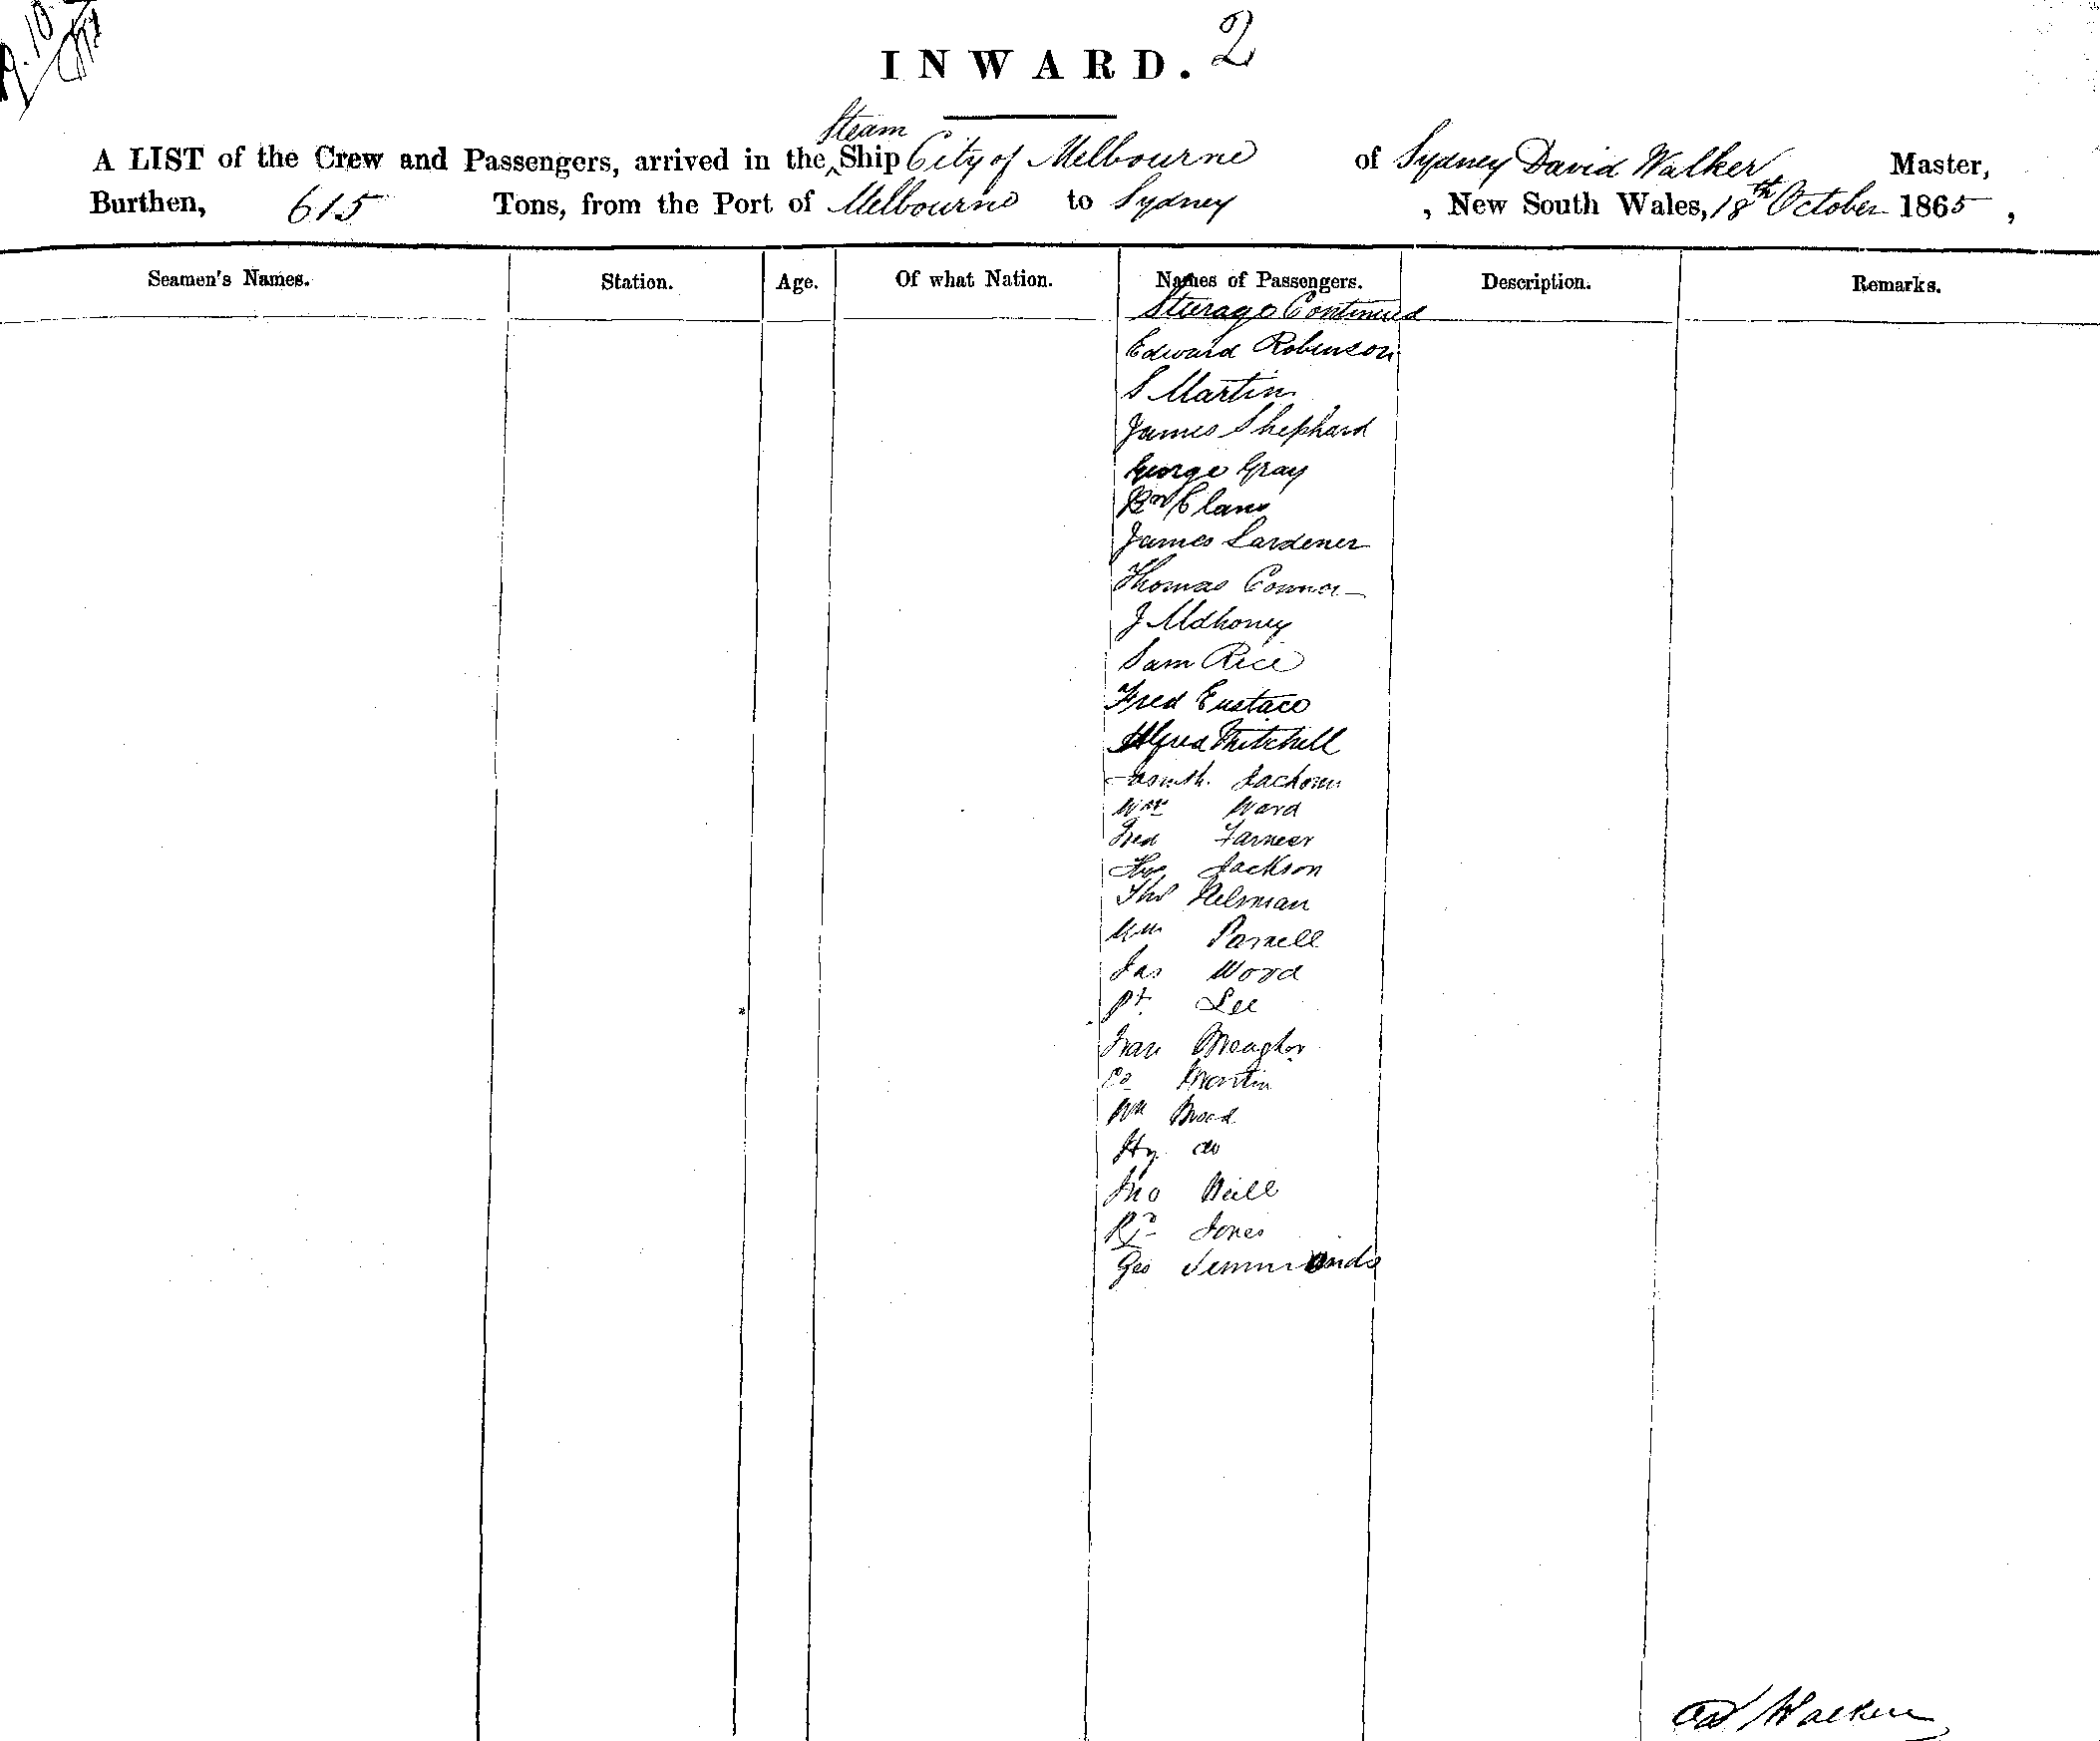 INWARD. 2
Steam
A LIST of the Crew and Passengers, arrived in the Ship City of Melbourne of Sydney David Walker Master,
Burthen, 615 Tons, from the Port of Melbourne to Sydney, New South Wales, 18th October 1865,
Seamen's Names. Station. Age. Of what Nation. Names of Passengers. Description. Remarks.
Steerage Continued
Edward Robinson
S Martin
James Shephard
George Gray
James Lardener
Thomas Connor
J Mahoney
Sam Rice
Fred Eustace
Alfred Mitchell
Wm Ward
Fred Farneer
Jackson
Thos
Wm Parnell
Jas Wood
Pt Lee
Meagher
Ed Martin
Wm Mead
Hy do
Jno Neill
Rd Jones
Geo
Walker